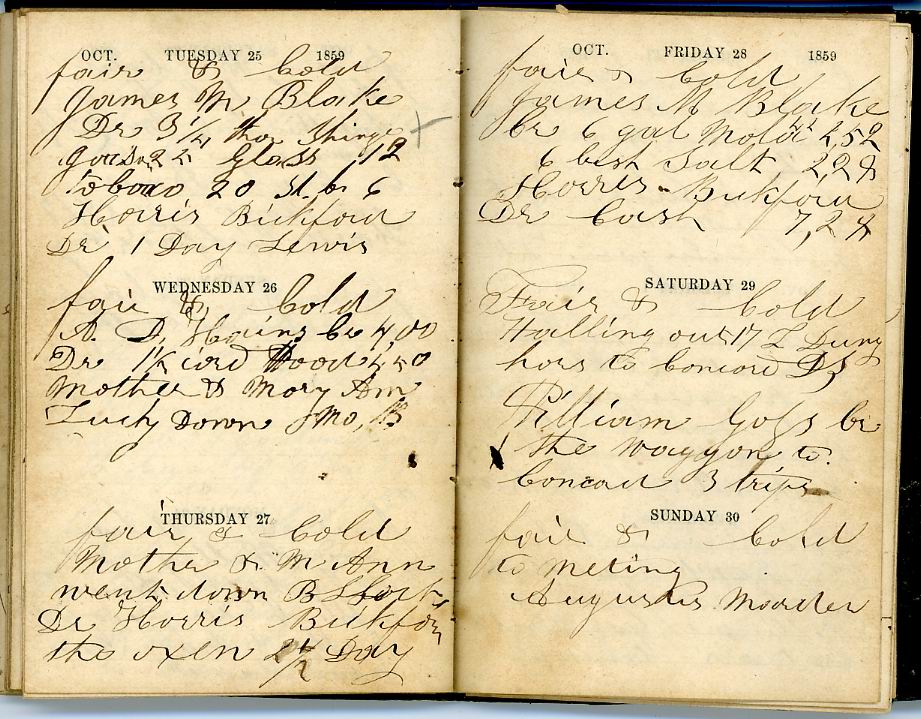 OCT. TUESDAY 25 1859
fair & Cold
James M Blake
Dr 3 1/4 tho Shings
Glass 12
20 6
Horris Bickford
Dr 1 Day Lewis
WEDNESDAY 26
fair & Cold
A. D, Hains Cr 4,00
Dr cord Wood
Mother & Mary Ann
Down
THURSDAY 27
fair & Cold
Mother & M Ann
went down
Dr Horris Bickford
the oxen Day
OCT. FRIDAY 28 1859
fair & Cold
James M Blake
Cr 6 gal Molas 2,52
6 bush Salt 2 28
Horris Bickford
Dr Cash 7,24
SATURDAY 29
Fair & Cold
Halling out 17 L Dung
hors to Concord DS
William Gofs Cr
the waggon to
Concord 3 trips
SUNDAY 30
fair & Cold
to meting
Augustus